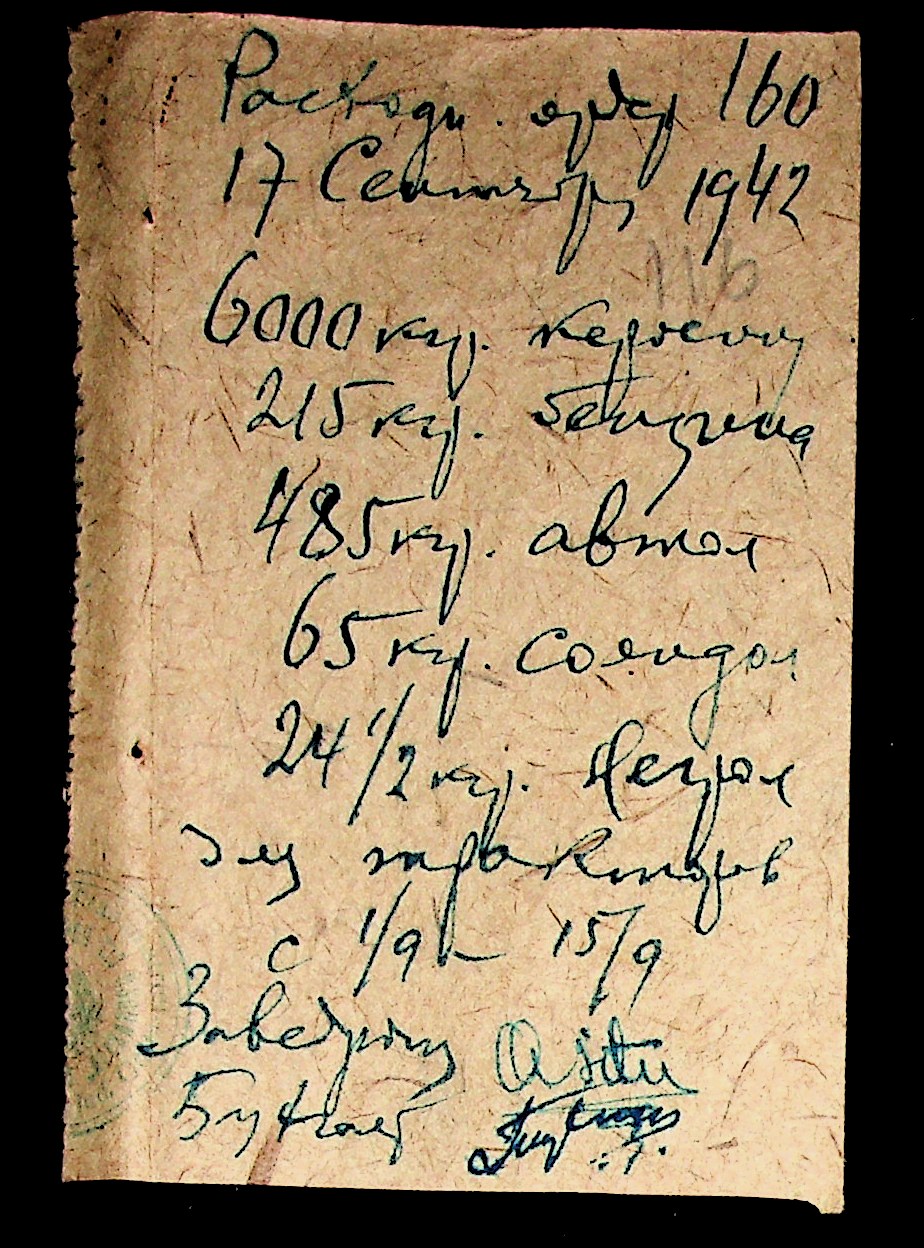 Расходн. ордер 160
17 Сентября 1942
116
6000 кгр. керосину
215 кгр. бензина
485 кгр. автол
65 кгр. солидол
24 1/2 кгр. Негрол
для тракторов
с 1/9 – 15/9
Заведующ
Бухгалт